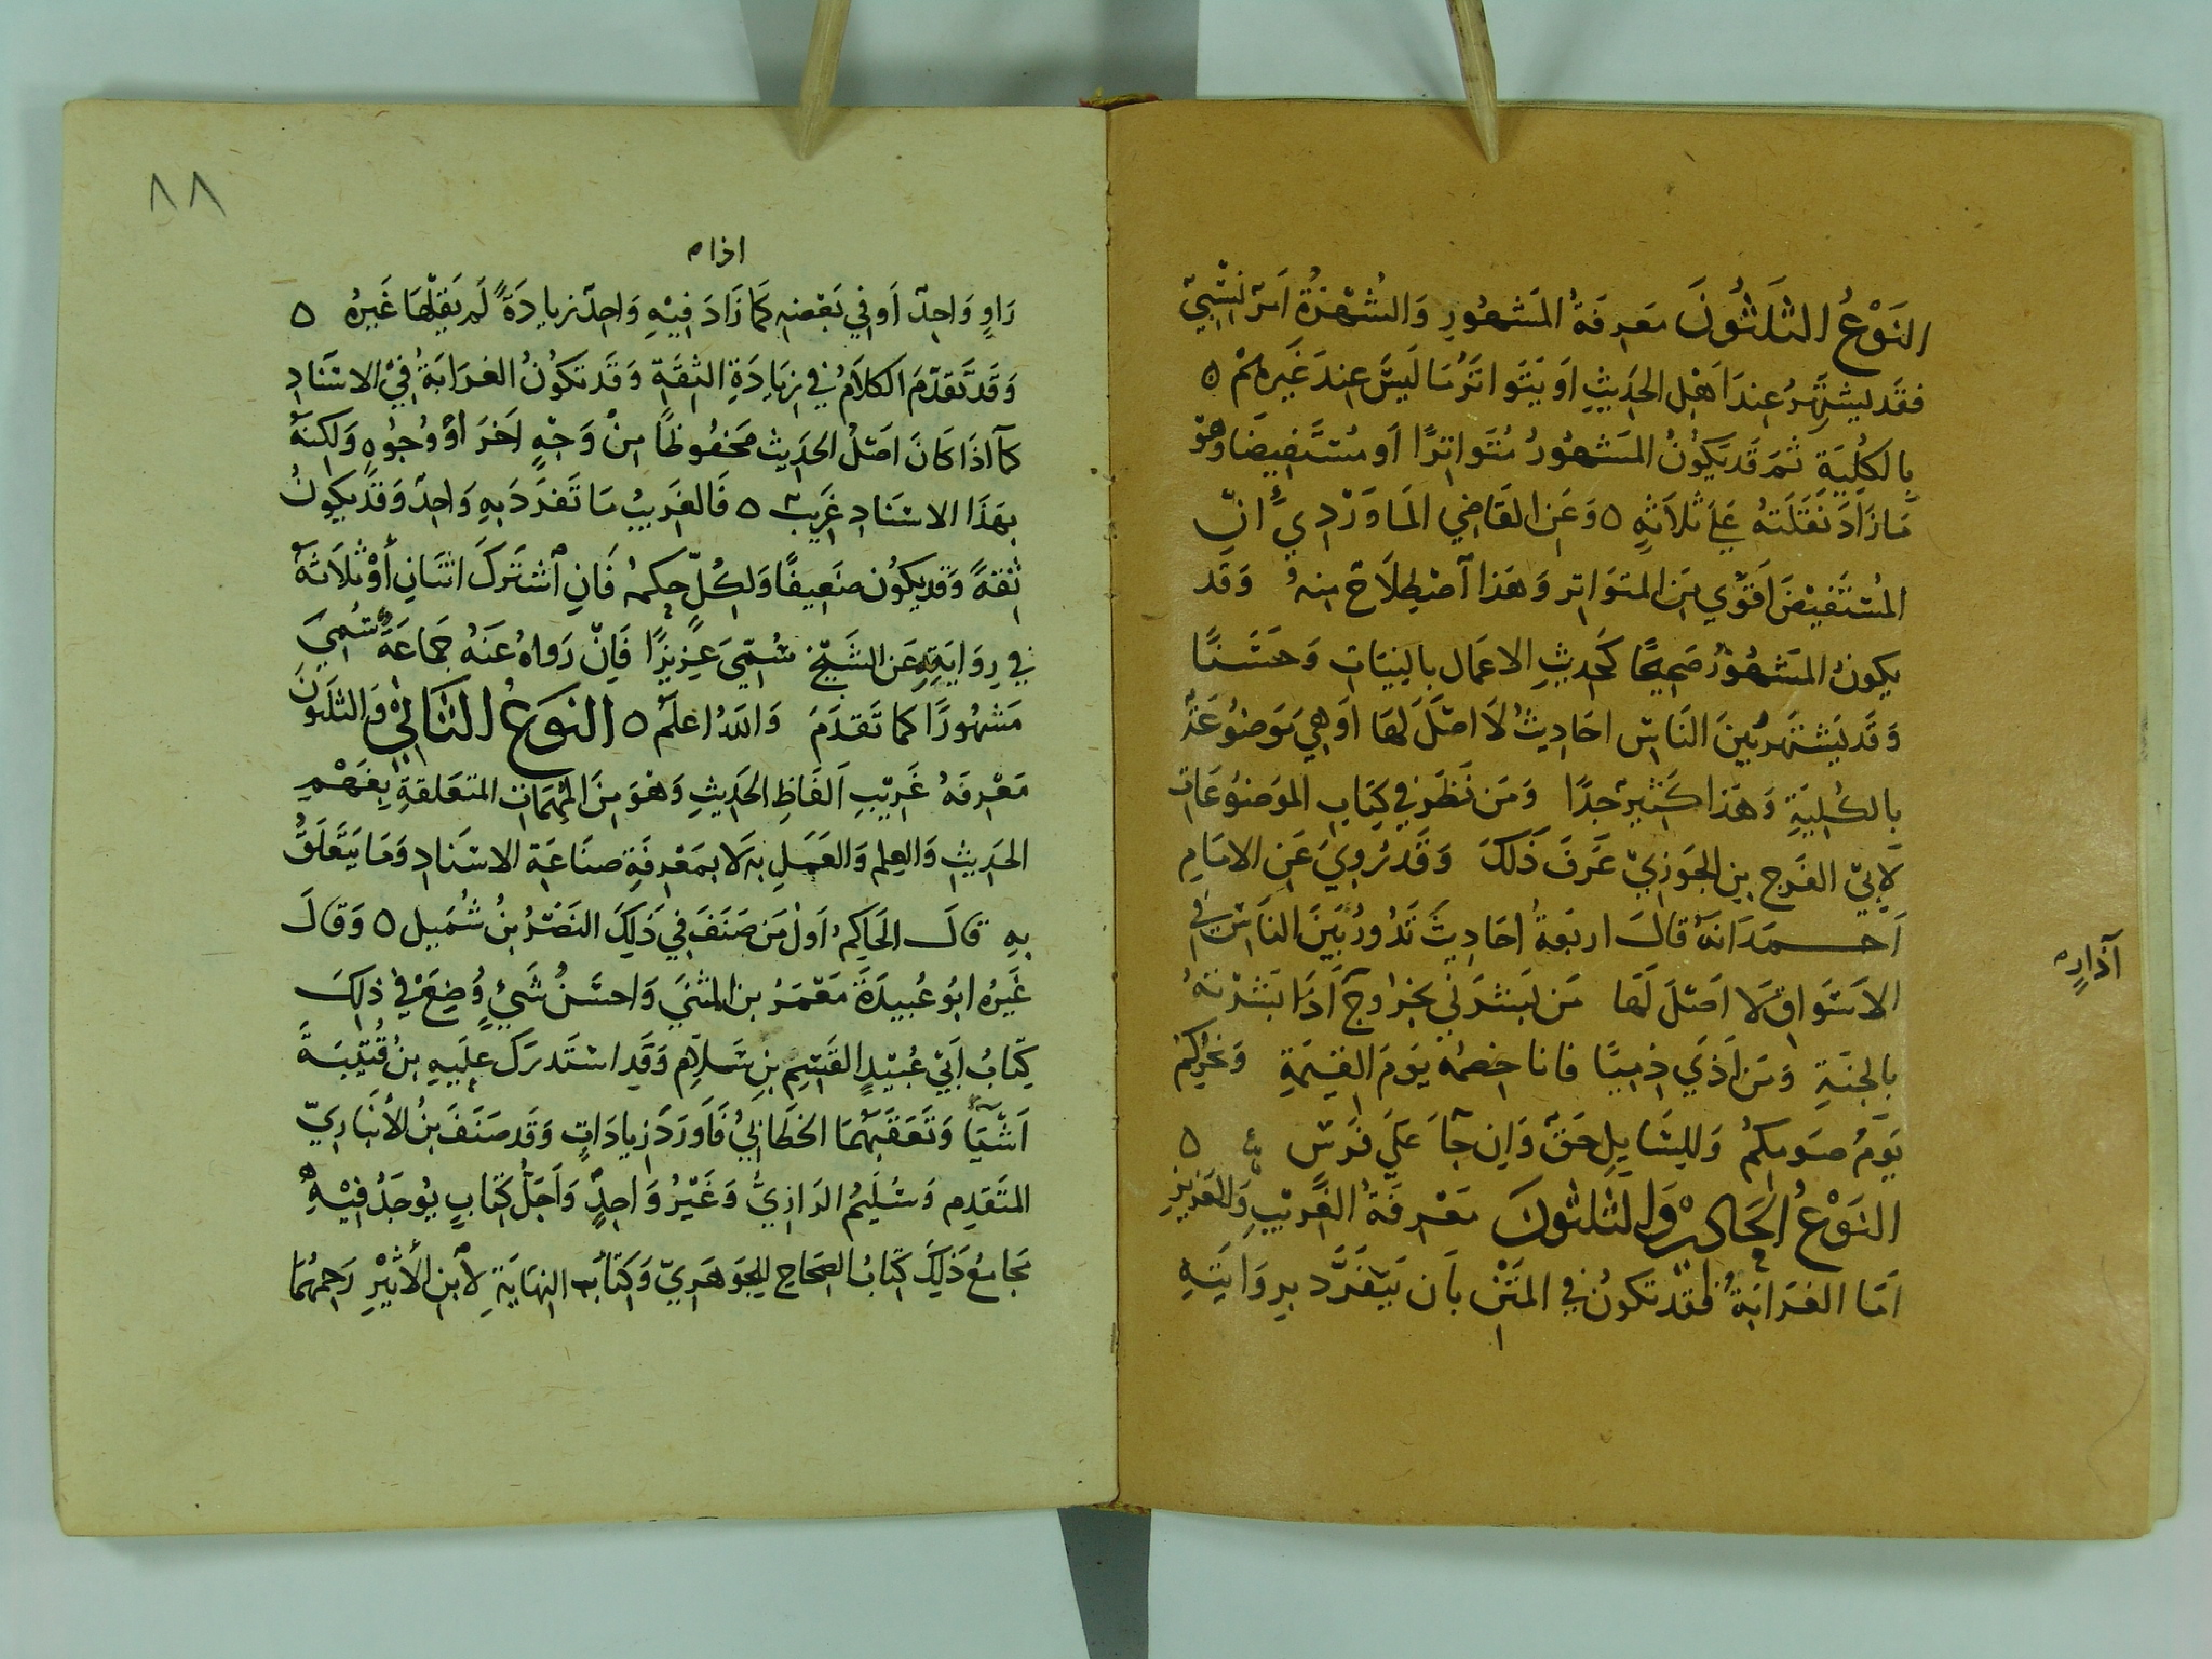 النوع الثلثون معرفة المشهور والشهرة امر نسبي
فقد يشتهر عند اهل الحديث او يتواتر ما ليس عند غيرهم ه
بالكلية ثم قد يكون المشهور متواترًا او مستفيضا وهو
ما زاد نقلته علي ثلاثة ه وعن القاضي الماوردي ان
المستفيض اقوي من المتواتر وهذا اصطلاح منه وقد
يكون المشهور صحيحًا كحديث الاعمال بالنيات وحسنًا
وقد يشتهر بين الناس احاديث لا اصل لها او هي موضوعة
بالكلية وهذا كثير جدًا ومن نظر في كتاب الموضوعات
لابي الفرج بن الجوزي عرف ذلك وقد روي عن الامام
احمد انه قال اربعة احاديث تدور بين الناس في
الاسواق لا اصل لها من بشرني بخروج آذار بشرته
بالجنة ومن اذي ذميًا فانا خصمه يوم القيمة ونحركم
يوم صومكم وللسايل حق وان جا علي فرس ه
النوع الحادي والثلثون معرفة الغريب والعزيز
اما الغرابة فقد تكون في المتن بان يتفرد بروايته
آذاره
٨٨
اذا م
راوٍ واحد او في بعضه كما زاد فيه واحد زيادة لم يقلها غيره ه
وقد تقدم الكلام في زيادة الثقة وقد تكون الغرابة في الاسناد
كما اذا كان اصل الحديث محفوظًا من وجه اخر او وجوه ولكنه
بهذا الاسناد غريب ه فالغريب ما تفرد به واحد وقد يكون
ثقة وقد يكون ضعيفًا ولكل حكمه فان اشترك اثنان أو ثلاثة
في روايته عن الشيخ سمي عزيزًا فان رواه عنه جماعة سمي
مشهورًا كما تقدم والله اعلم ه النوع الثاني والثلثون
معرفة غريب الفاظ الحديث وهو من المهمات المتعلقة بفهم
الحديث والعلم والعمل به لا بمعرفة صناعة الاسناد وما يتعلق
به قال الحاكم اول من صنف في ذلك النضر بن شميل ه وقال
غيره ابو عبيدة معمر بن المثني واحسن شيء وضع في ذلك
كتاب ابي عبيد القسم بن سلام وقد استدرك عليه بن قتيبة
اشيا وتعقبهما الخطابي فاورد زيادات وقد صنف بن الأنباري
المتقدم وسليم الرازي وغير واحد واجل كتاب يوجد فيه
مجامع ذلك كتاب الصحاح للجوهري وكتاب النهاية لأبن الأثير رحمهما